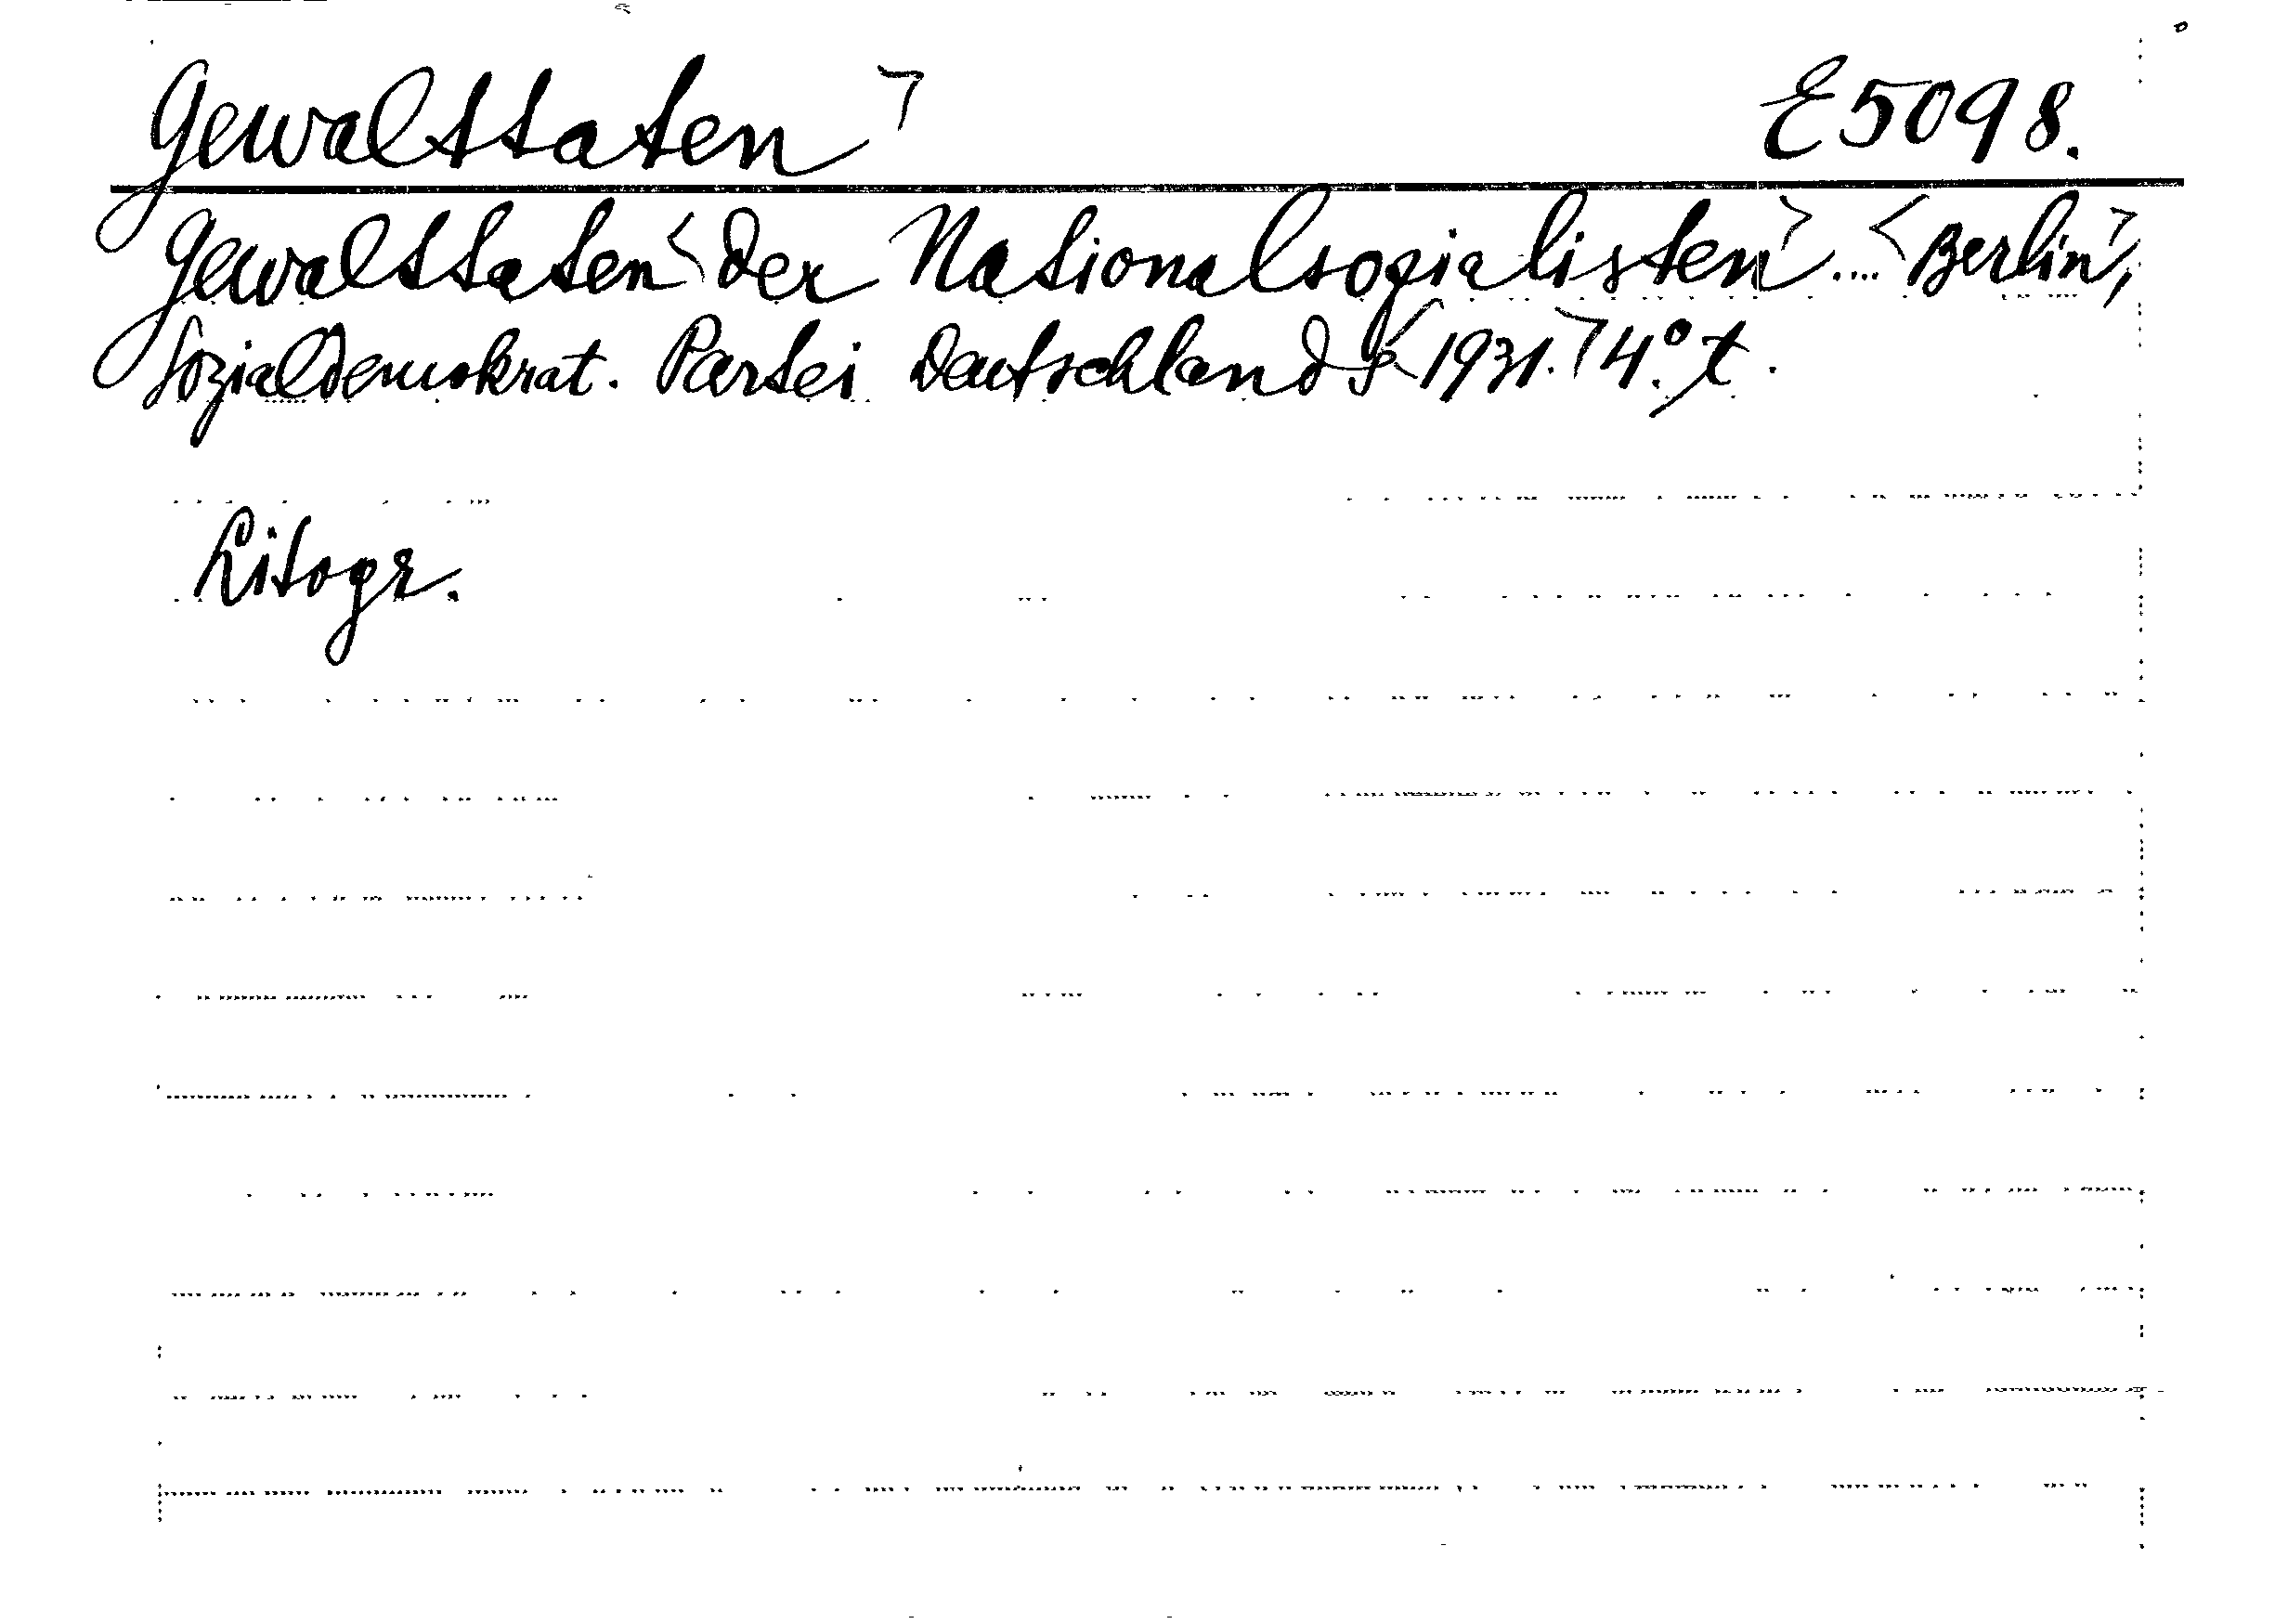 Gewalttaten ⌝ E 5098.
Gewalttaten < der Nationalsozialisten > .... < Berlin ⌝,
Sozialdemokrat. Partei Deutschlands < 1931. ⌝ 4.° t.
Litogr.